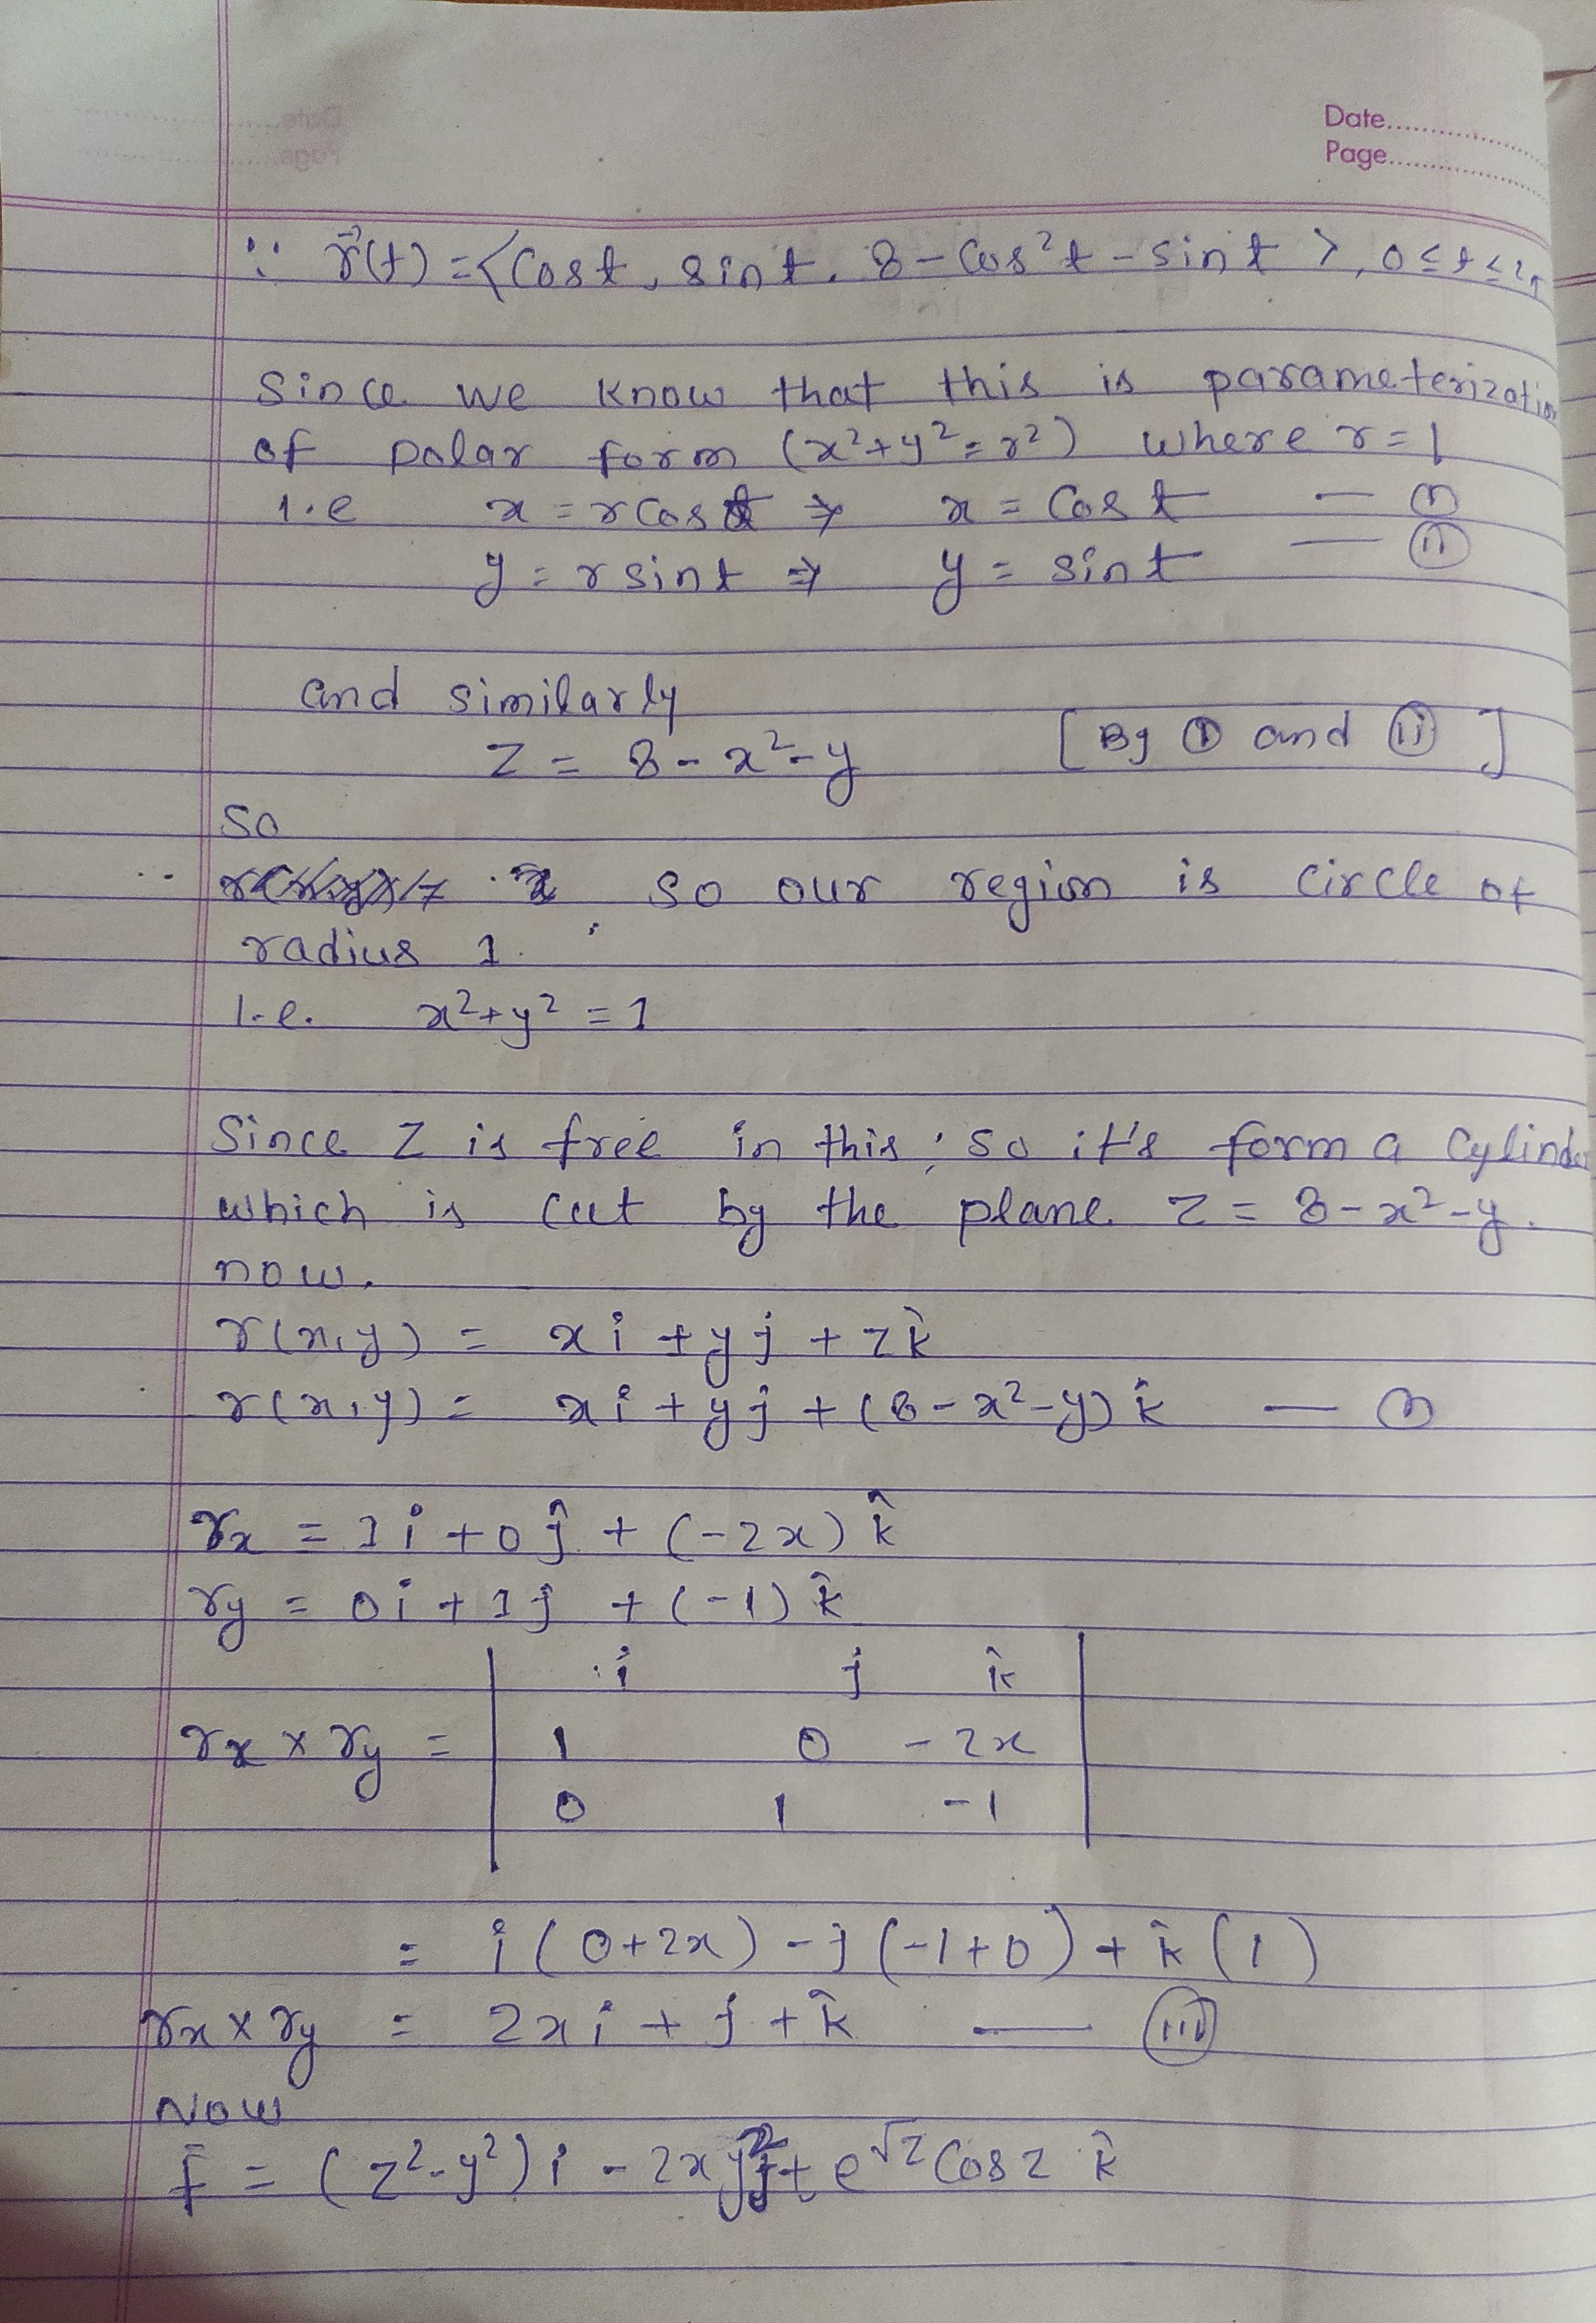 Date..............
Page..............
∵ r⃗(t) = <Cost, sint, 8 - Cos²t - sint >, 0 ≤ t ≤ 2π
Since we know that this is parameterization
of polar form (x²+y²=r²) where r=1
i.e x = rcost ⇒ x = Cost — (i)
y = rsint ⇒ y = sint — (ii)
and similarly
z = 8 - x² - y [By (i) and (ii)]
so
so our region is circle of
radius 1.
i.e. x²+y² = 1
Since z is free in this, so it's form a Cylinder
which is cut by the plane z = 8-x²-y.
now.
r(x,y) = xi + yj + zk̂
r(x,y) = xi + yj + (8-x²-y)k̂ — (i)
rx = 1i + 0ĵ + (-2x)k̂
ry = 0i + 1j + (-1)k̂
i j k̂
rx × ry = 1 0 -2x
0 1 -1
= i(0+2x) - j(-1+0) + k̂(1)
rx × ry = 2xi + j + k̂ — (iii)
Now
F = (z²-y²)i - 2xy²j + e^√z Cosz k̂